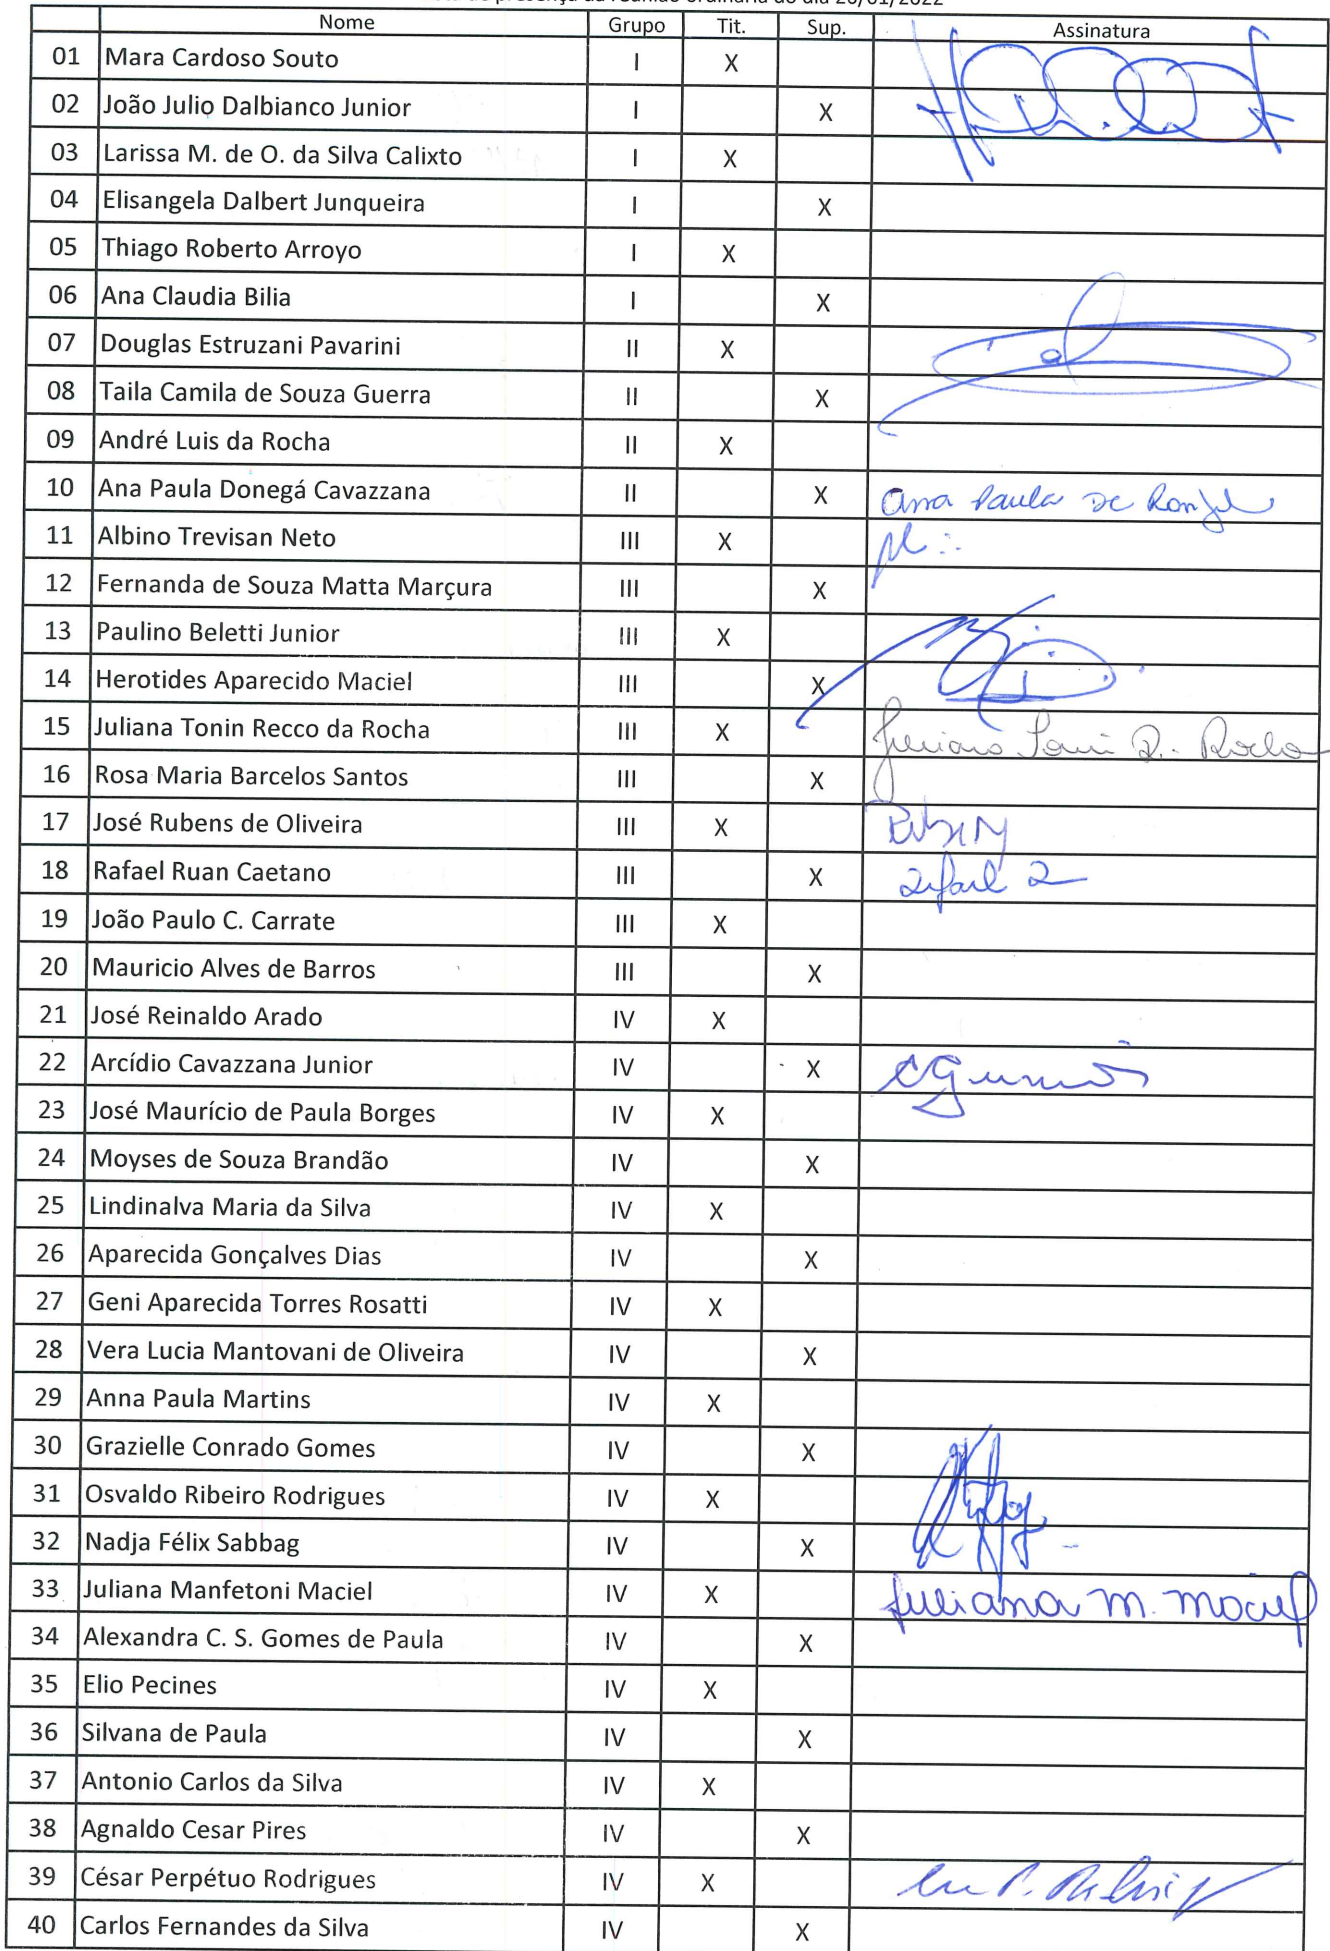 presença da reunião ordinária do dia 20/01/2022
Nome Grupo Tit. Sup. Assinatura
01 Mara Cardoso Souto I X
02 João Julio Dalbianco Junior I X
03 Larissa M. de O. da Silva Calixto I X
04 Elisangela Dalbert Junqueira I X
05 Thiago Roberto Arroyo I X
06 Ana Claudia Bilia I X
07 Douglas Estruzani Pavarini II X
08 Taila Camila de Souza Guerra II X
09 André Luis da Rocha II X
10 Ana Paula Donegá Cavazzana II X Ana Paula De
11 Albino Trevisan Neto III X
12 Fernanda de Souza Matta Marçura III X
13 Paulino Beletti Junior III X
14 Herotides Aparecido Maciel III X
15 Juliana Tonin Recco da Rocha III X Juliana Tonin R. Rocha
16 Rosa Maria Barcelos Santos III X
17 José Rubens de Oliveira III X
18 Rafael Ruan Caetano III X Rafael R
19 João Paulo C. Carrate III X
20 Mauricio Alves de Barros III X
21 José Reinaldo Arado IV X
22 Arcídio Cavazzana Junior IV X
23 José Maurício de Paula Borges IV X
24 Moyses de Souza Brandão IV X
25 Lindinalva Maria da Silva IV X
26 Aparecida Gonçalves Dias IV X
27 Geni Aparecida Torres Rosatti IV X
28 Vera Lucia Mantovani de Oliveira IV X
29 Anna Paula Martins IV X
30 Grazielle Conrado Gomes IV X
31 Osvaldo Ribeiro Rodrigues IV X
32 Nadja Félix Sabbag IV X
33 Juliana Manfetoni Maciel IV X Juliana M. Maciel
34 Alexandra C. S. Gomes de Paula IV X
35 Elio Pecines IV X
36 Silvana de Paula IV X
37 Antonio Carlos da Silva IV X
38 Agnaldo Cesar Pires IV X
39 César Perpétuo Rodrigues IV X
40 Carlos Fernandes da Silva IV X